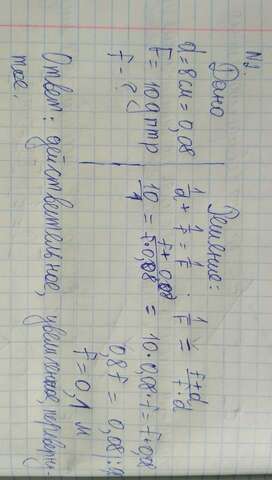 N1.
Дано
d = 8 см = 0,08
F = 10 дптр
f - ?
Решение:
1/d + 1/f = 1/F ; 1/F = f+d / f·d
10/1 = f+0,08 / f·0,08 = 10·0,08·f = f+0,08
0,8f = 0,08
f = 0,1 м
Ответ: действительное, увеличенное, переверну-
тое.